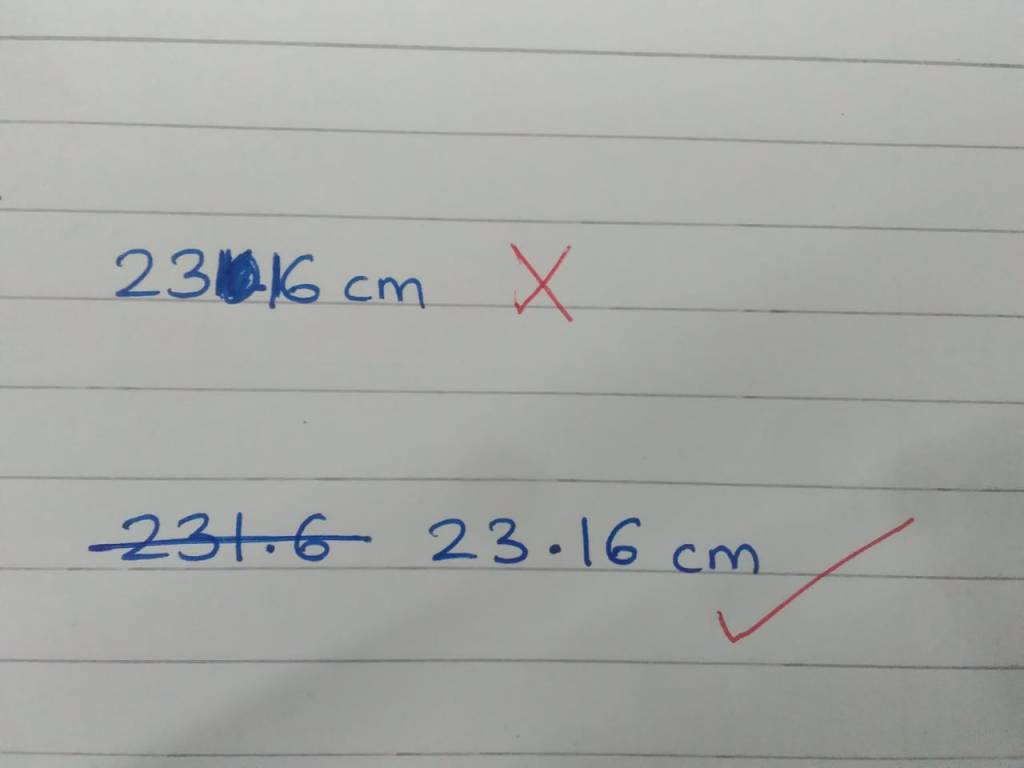 23.16 cm
231.6 23.16 cm